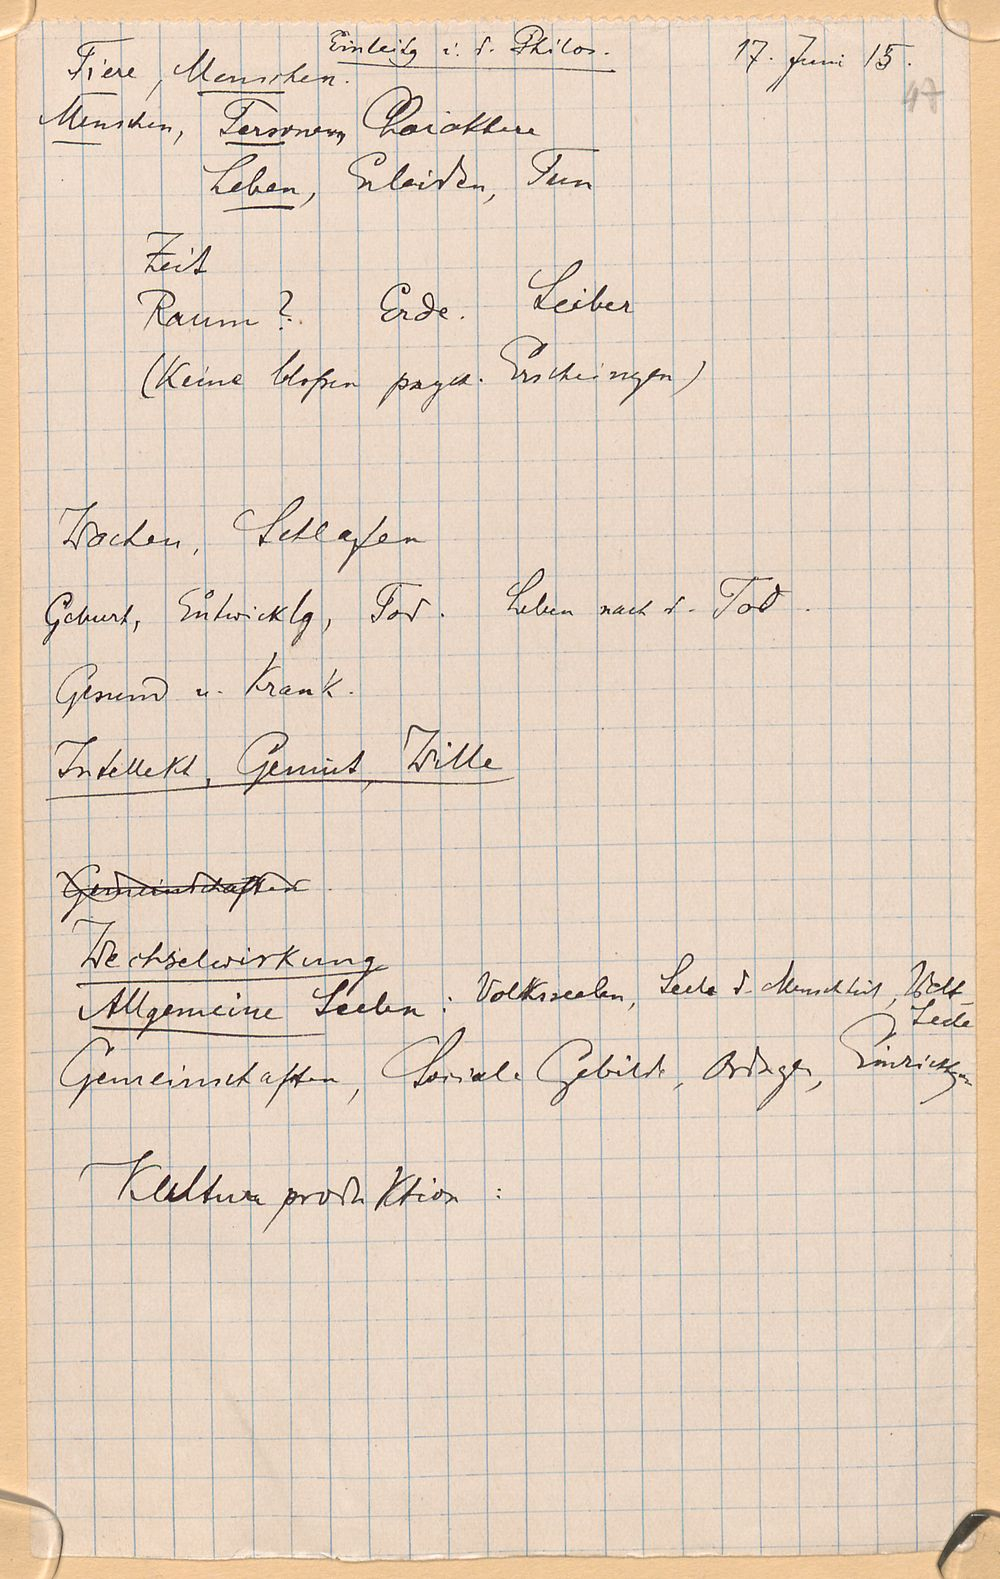 Einleitg i. d. Philos. 17. Juni 15.
47
Tiere, Menschen.
Menschen, Personen, Charaktere
Leben, Erleiden, Tun
Zeit
Raum? Erde. Leiber
(Keine bloßen psych. Erscheingen)
Wachen, Schlafen
Geburt, Entwicklg, Tod. Leben nach d. Tod.
Gesund u. Krank.
Intellekt, Gemüt, Wille
Gemeinschaften
Wechselwirkung
Allgemeine Seelen: Volksseelen, Seele d. Menschheit, Welt-
Seele
Gemeinschaften, Soziale Gebilde, Ordngen, Einrichtgen
Kulturproduktion: